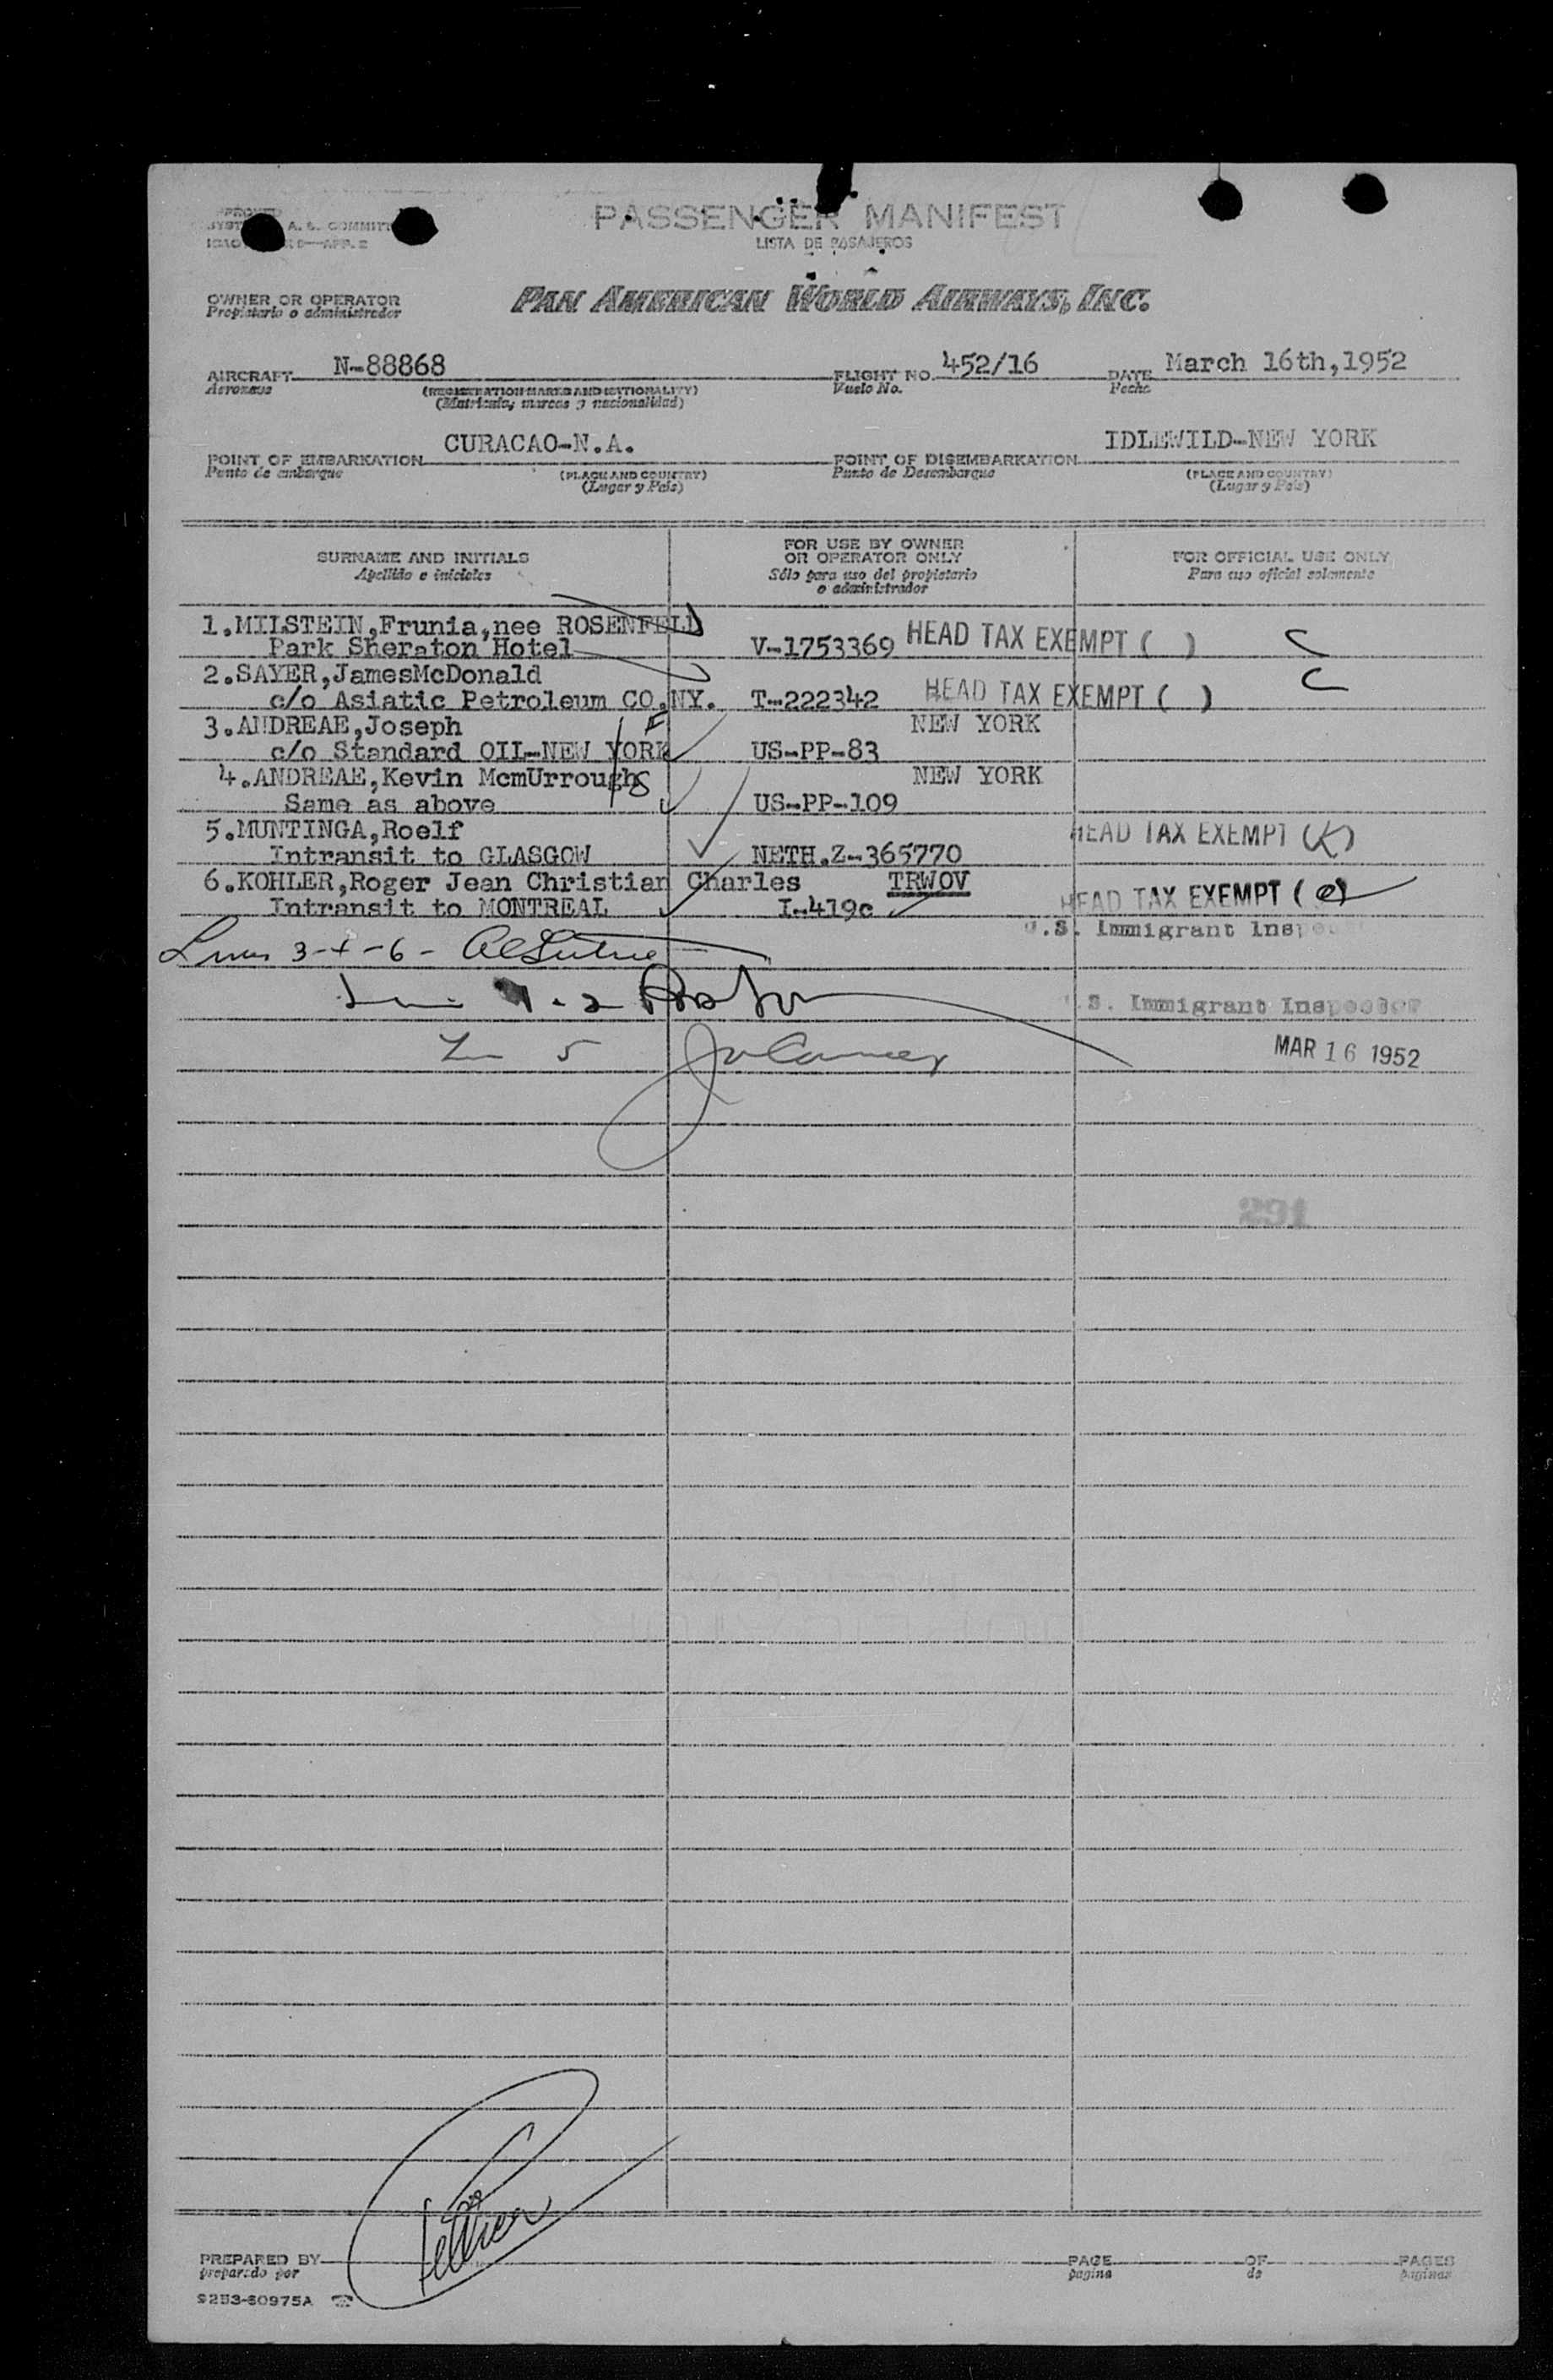 PASSENGER MANIFEST
LISTA DE PASAJEROS
OWNER OR OPERATOR
Propietario o administrador
PAN AMERICAN WORLD AIRWAYS, INC.
AIRCRAFT N-88868 FLIGHT NO. 452/16 DATE March 16th,1952
Aeronave (REGISTRATION MARKS AND NATIONALITY) Vuelo No. Fecha
(Matricula, marcas y nacionalidad)
POINT OF EMBARKATION CURACAO-N.A. POINT OF DISEMBARKATION IDLEWILD-NEW YORK
Punto de embarque (PLACE AND COUNTRY) Punto de Desembarque (PLACE AND COUNTRY)
(Lugar y Pais) (Lugar y Pais)
SURNAME AND INITIALS FOR USE BY OWNER OR OPERATOR ONLY FOR OFFICIAL USE ONLY
Apellido e iniciales Sólo para uso del propietario o administrador Para uso oficial solamente
1.MILSTEIN,Frunia,nee ROSENFELD
Park Sheraton Hotel V-1753369 HEAD TAX EXEMPT ( )
2.SAYER,JamesMcDonald
c/o Asiatic Petroleum CO.NY. T-222342 HEAD TAX EXEMPT ( )
3.ANDREAE,Joseph NEW YORK
c/o Standard OIL-NEW YORK US-PP-83
4.ANDREAE,Kevin McmUrroughs NEW YORK
Same as above US-PP-109
5.MUNTINGA,Roelf HEAD TAX EXEMPT (K)
Intransit to GLASGOW NETH.Z-365770
6.KOHLER,Roger Jean Christian Charles TRWOV
Intransit to MONTREAL I-419c HEAD TAX EXEMPT (e)
U.S. Immigrant Inspector
3-4-6-
U.S. Immigrant Inspector
5
MAR 16 1952
291
PREPARED BY PAGE OF PAGES
preparado por pagina de paginas
9253-60975A